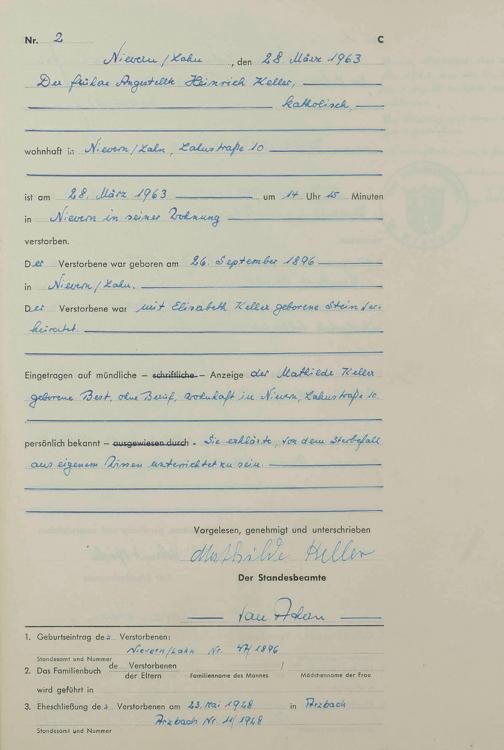 Nr. 2 C
Nievern/Lahn, den 28. März 1963
Der frühere Angestellte Heinrich Keller,
katholisch,
wohnhaft in Nievern/Lahn, Lahnstraße 10
ist am 28. März 1963 um 14 Uhr 15 Minuten
in Nievern in seiner Wohnung
verstorben.
Der Verstorbene war geboren am 26. September 1896
in Nievern/Lahn.
Der Verstorbene war mit Elisabeth Keller geborene Stein ver-
heiratet.
Eingetragen auf mündliche – schriftliche – Anzeige der Mathilde Keller
geborene Best, ohne Beruf, wohnhaft in Nievern, Lahnstraße 10.
persönlich bekannt – ausgewiesen durch . Sie erklärte, von dem Sterbefall
aus eigenem Wissen unterrichtet zu sein.
Vorgelesen, genehmigt und unterschrieben
Mathilde Keller
Der Standesbeamte
1. Geburtseintrag des Verstorbenen:
Nievern/Lahn Nr. 47/1896
Standesamt und Nummer
2. Das Familienbuch de Verstorbenen
der Eltern Familienname des Mannes / Mädchenname der Frau
wird geführt in
3. Eheschließung des Verstorbenen am 23. Mai 1928 in Arzbach
Arzbach Nr. 11/1928
Standesamt und Nummer